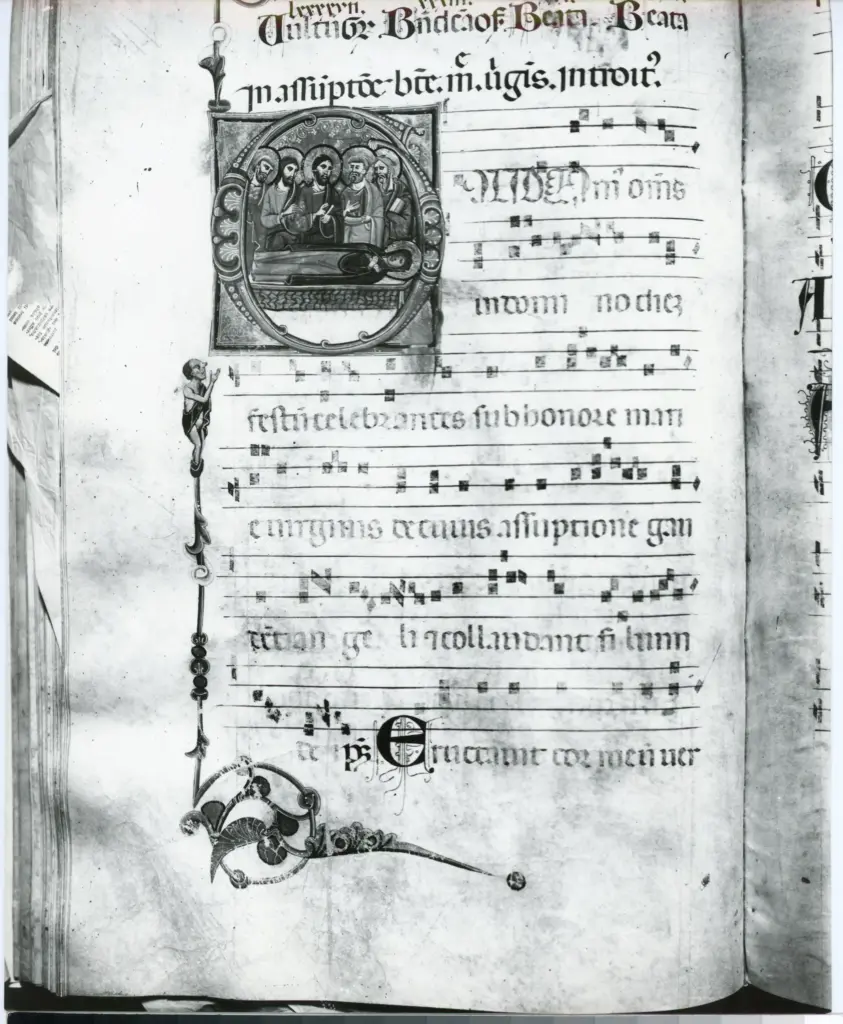 lxxxxvii. xxiiii.
Uultū Gr̄ Bn̄dca of. Beata. Beata
In assūptōe bt̄e. m̄. ūgĩs. Introit᷒.
AUDEAm᷒ om̄s
in domi no diez
festū celebrantes sub honore mari
e uirginis de cuius assūptione gau
dēt an ge li ⁊ collaudant fi lium
de ps̄ Eructauit cor meū uer